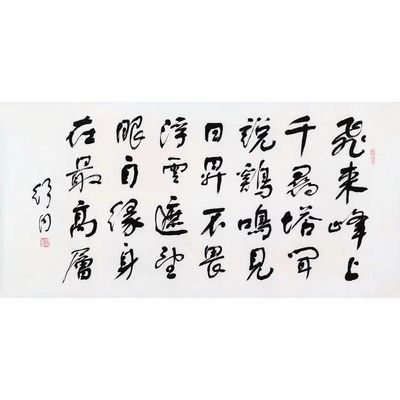 飛來峰上
千尋塔聞
説鷄鳴見
日昇不畏
浮雲遮望
眼自緣身
在最高層
舒同